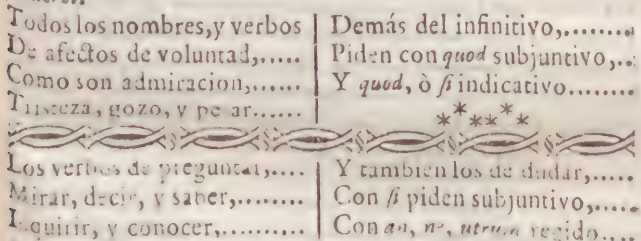 Todos los nombres, y verbos
De afectos de voluntad,.....
Como son admiracion,.....
Tristeza, gozo, y pe ar......
Demás del infinitivo,........
Piden con quod subjuntivo,..
Y quod, ò ſi indicativo........
Los verbos de preguntar,....
Mirar, decir, y saber,........
Inquirir, y conocer,..........
Y tambien los de dudar,.....
Con ſi piden subjuntivo,.....
Con an, ne, utrum regido....